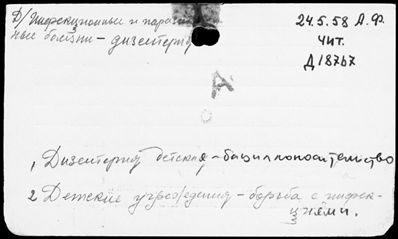 Д/Инфекционные и парази
ные болезни - дизентерия
24.5.58 А.Ф.
Чит.
Д18767
А
1, Дизентерия детская - бациллоносительство
2 Детские учреждения - борьба с инфек-
циями.